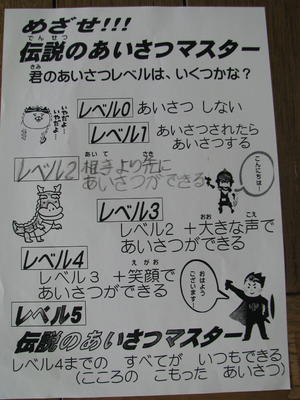 めざせ!!!
でんせつ
伝説のあいさつマスター
きみ
君のあいさつレベルは、いくつかな?
レベル0 あいさつ しない
レベル1 あいさつされたら
あいさつする
あいて さき
レベル2 相手より先に
あいさつができる
こんにちは!
レベル3
おお こえ
レベル2 +大きな声で
あいさつができる
レベル4
えがお
レベル3 +笑顔で
あいさつができる
おはよう
ございます!
レベル5
伝説のあいさつマスター
レベル4までの すべてが いつもできる
(こころの こもった あいさつ)